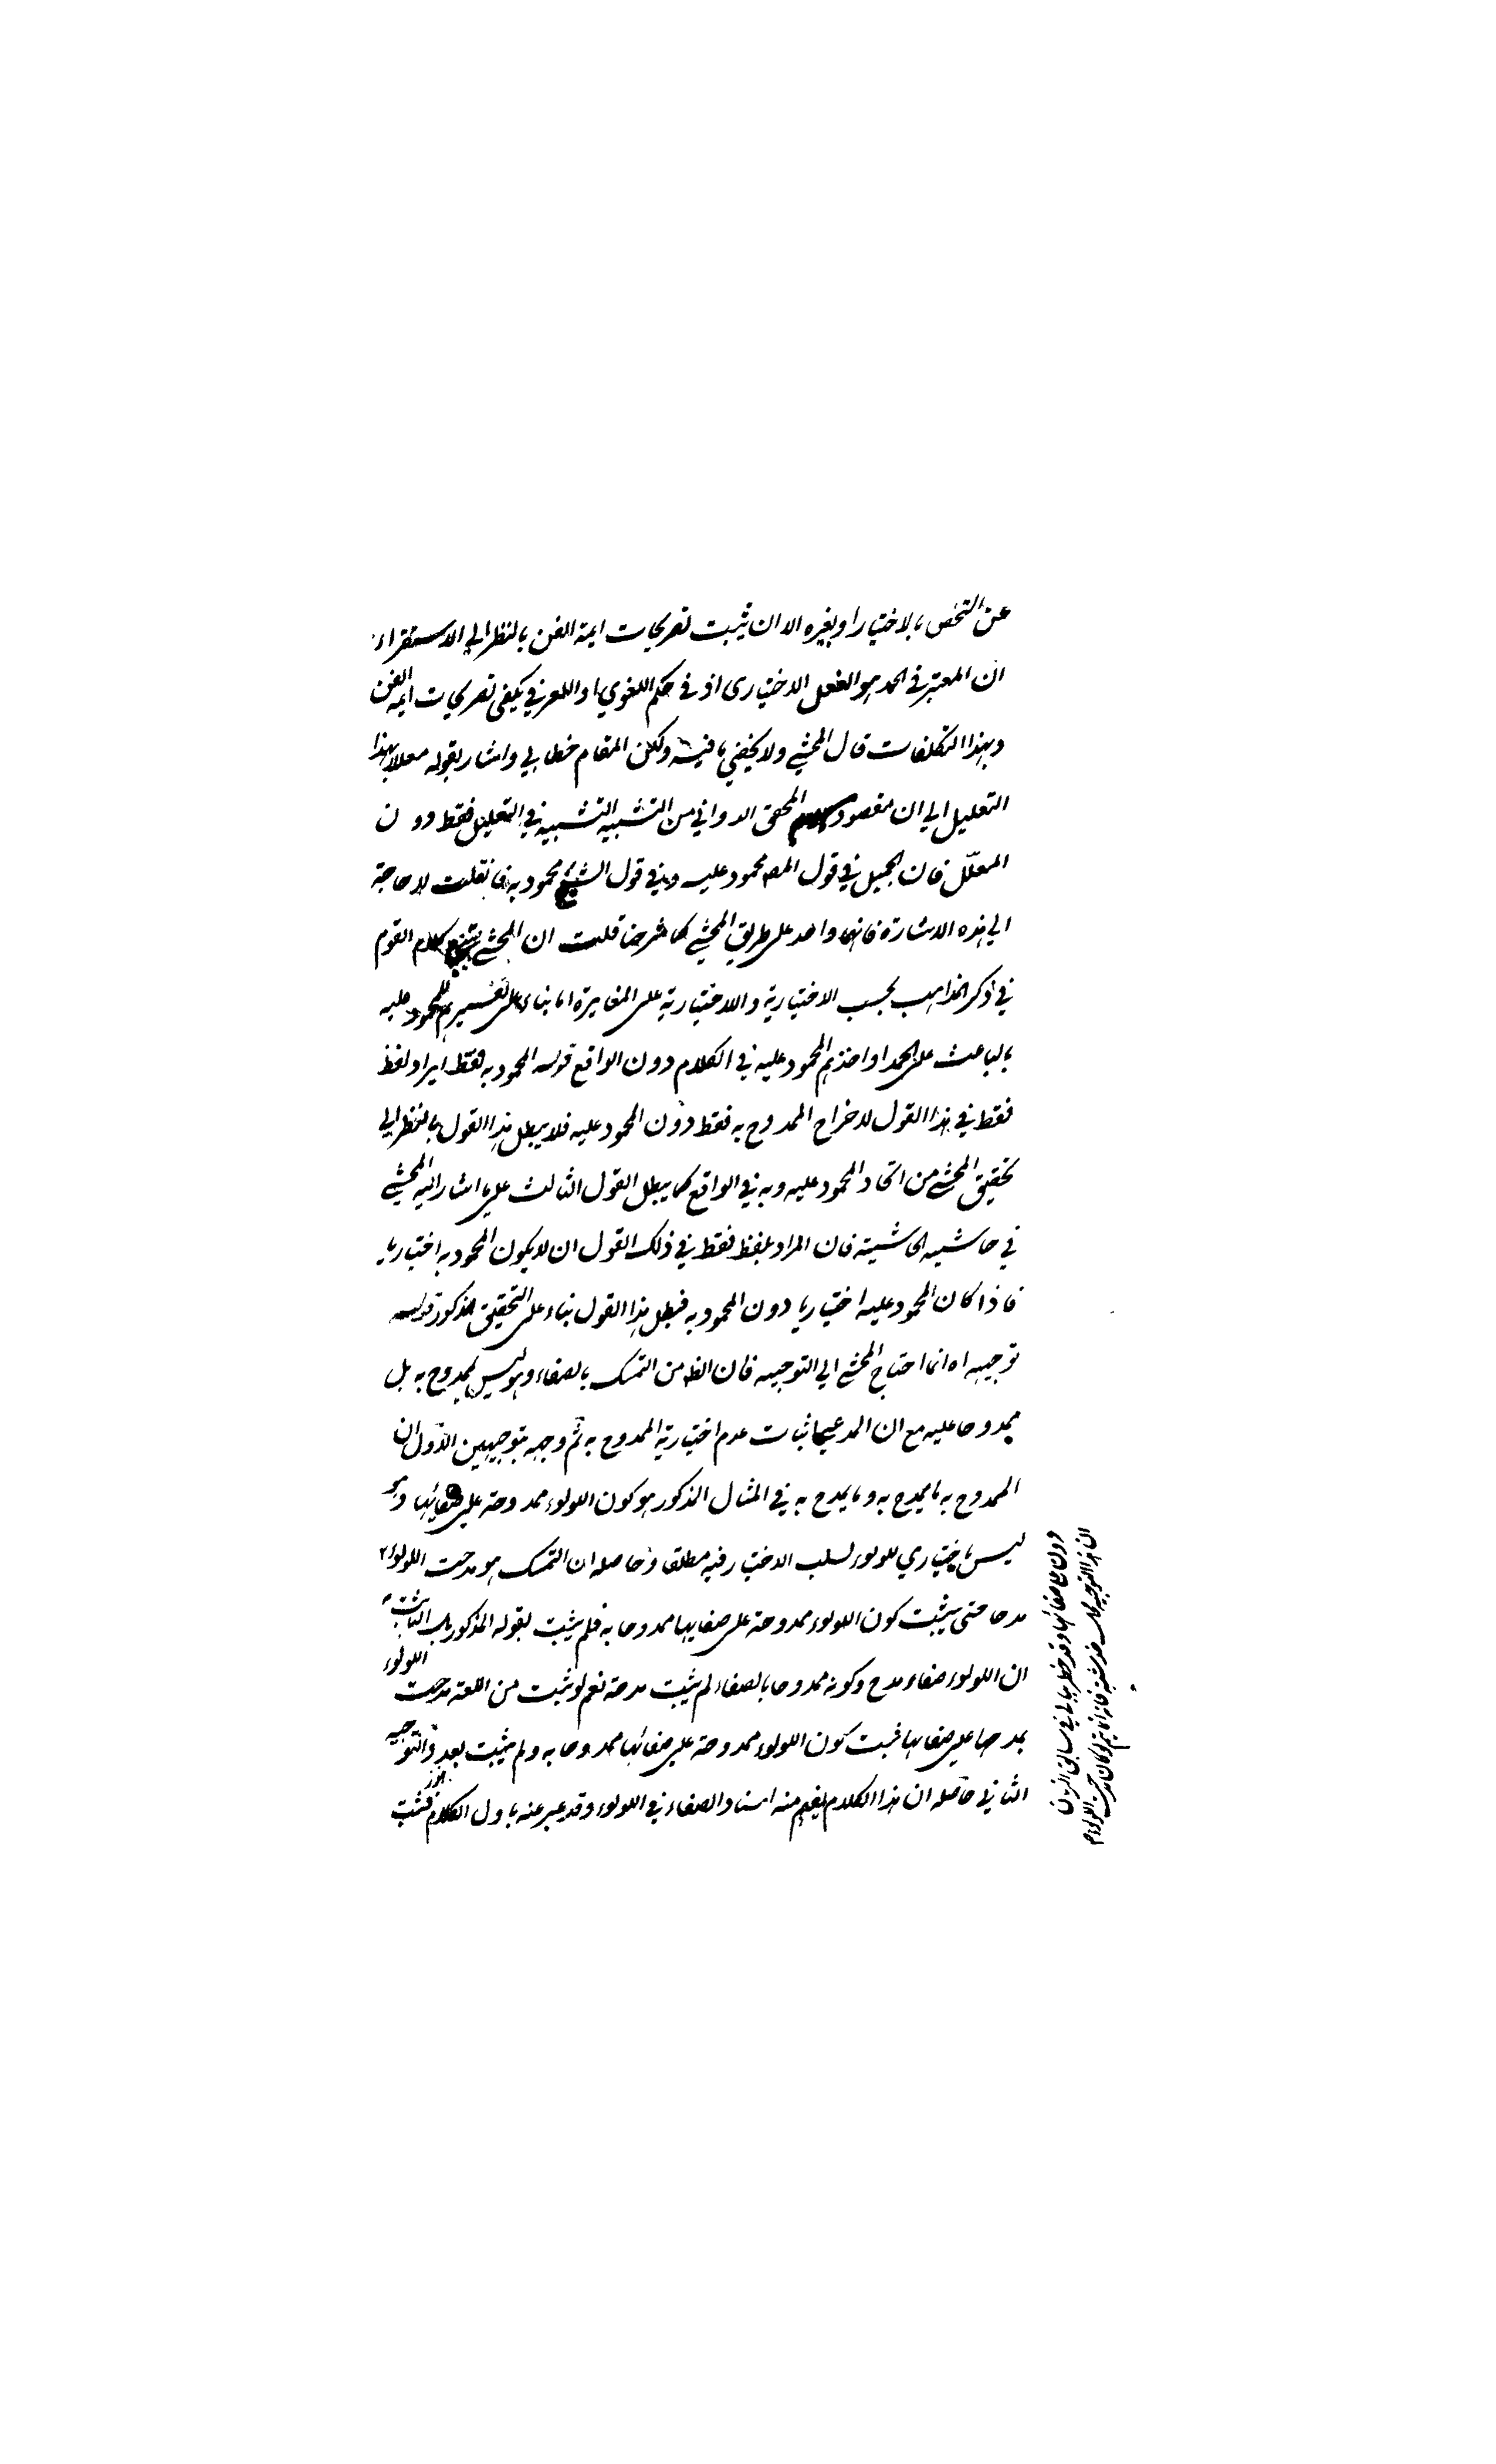 عن التخص بالاختيار او بغيره الا ان يثبت تصريحات ايمة الفن بالنظر الي الاستقراء
ان المعتبر في الحمد هو الفعل الاختياري اذ في حكم اللغوي او العرفي يكفي تصريحات ايمة الفن
وبهذا التكلفات قال المحشي ولا يخفي ما فيه ولكن المقام خطابي واشار بقوله معللا بهذا
التعليل الي ان مقصود المحقق الدواني من التشبيه التشبيه في التعليل فقط دون
المعلّل فان الجميل في قول المص محمود عليه وفي قول الشيخ محمود به فان قلت لا حاجة
الي هذه الاشارة فانهما واحد علي طريق المحشي كما شرحنا قلت ان المحشي يتبع كلام القوم
في ذكر المذاهب بحسب الاختيارية واللااختيارية علي المغايرة اما بناء علي تفسيرهم للمحمود عليه
بالباعث علي الحمد او اخذهم المحمود عليه في الكلام دون الواقع قوله المحمود به فقط ايراد لفظ
فقط في هذا القول لاخراج الممدوح به فقط دون المحمود عليه فلا يبطل هذا القول بالنظر الي
تحقيق المحشي من اتحاد المحمود عليه وبه في الواقع كما يبطل القول الثالث علي ما اشار اليه المحشي
في حاشيه الحاشية فان المراد بلفظ فقط في ذلك القول ان لا يكون المحمود به اختياريا
فاذا كان المحمود عليه اختياريا دون المحمود به فبطل هذا القول بناء علي التحقيق المذكور قوله
توجيهه اه انما احتاج المحشي الي التوجيه فان الظ من التمسك بالصفاء وهو ليس بممدوح به بل
ممدوحا عليه مع ان المدعي اثبات عدم اختيارية الممدوح به ثم وجه بتوجيهين الاول ان
الممدوح به ما يمدح به وما يمدح به في المثال المذكور هو كون اللولوء ممدوحة علي صفائها وهو
ليس باختياري للولوء لسلب الاختيار فيه مطلقا وحاصله ان التمسك هو مدحت اللولوء
مدحا حتي يثبت كون اللولوء ممدوحة علي صفايها ممدوحا به فلم يثبت بقوله المذكور بل الثابت
ان اللولوء صفاء مدح وكونه ممدوحا بالصفاء لم يثبت مدحة نعم لو ثبت من اللغة مدحت اللولوء
بمدحها علي صفائها فثبت كون اللولوء ممدوحة علي صفائها ممدوحا به ولم يثبت بعد والتوجيه
الثاني حاصله ان هذا الكلام يفهم منه اسناد الصفاء في اللولوء وقد عبر عنه باول الكلام فثبت
ان هذا التوجيه
دون علي صفائها وقد خطر ببالي في سالف الزمان